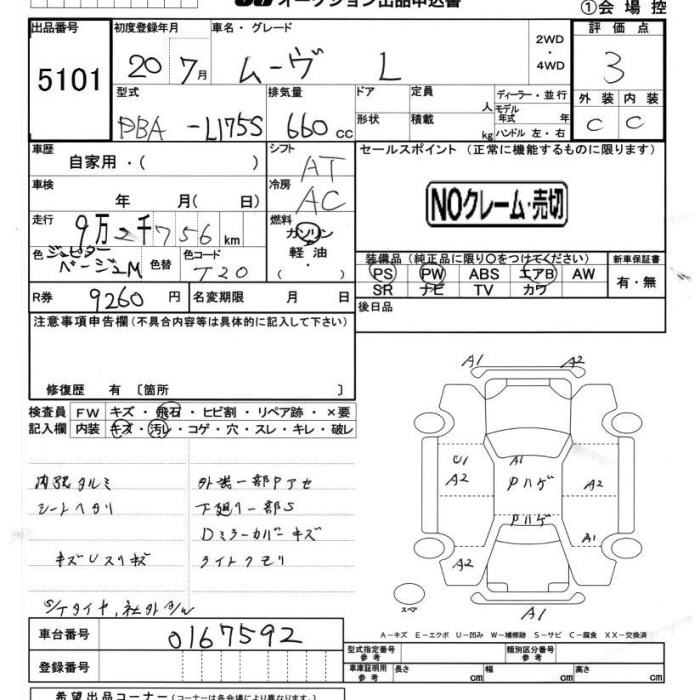 オークション出品申込書 ①会場控
出品番号 初度登録年月 車名・グレード 2WD・4WD 評価点
5101 20年7月 ムーヴ L 3
型式 排気量 ドア 定員 人 ディーラー・並行 外装 内装
PBA-L175S 660cc 形状 積載 kg モデル年式 年 ハンドル 左・右 C C
車歴 自家用・( ) シフト AT セールスポイント(正常に機能するものに限ります)
車検 年 月(日) 冷房 AC NOクレーム・売切
走行 9万2千756km 燃料 ガソリン
色 ジュピターベージュM 色替 色コード T20 軽油 ・( )
装備品(純正品に限り○をつけてください) 新車保証書
PS PW ABS エアB AW 有・無
SR ナビ TV カワ
R券 9260円 名変期限 月 日 後日品
注意事項申告欄(不具合内容等は具体的に記入して下さい)
修復歴 有〔箇所 〕
検査員 FW キズ・飛石・ヒビ割・リペア跡・×要
記入欄 内装 キズ・汚レ・コゲ・穴・スレ・キレ・破レ
内張タルミ 外装一部Pアセ
シートヘタリ 下廻り一部S
Dミラーカバーキズ
キズUスリキズ ライトクモリ
S/Tタイヤ、社外A/W
A1 A2
U1 A1
A2 Pハゲ A2
Pハゲ
A1
A2 A2
スペア A1
A-キズ E-エクボ U-凹み W-補修跡 S-サビ C-腐食 XX-交換済
車台番号 0167592
登録番号
型式指定番号 参考 類別区分番号 参考
車庫証明用 参考 長さ cm 幅 cm 高さ cm
希望出品コーナー(コーナー名は各会場により異なります)